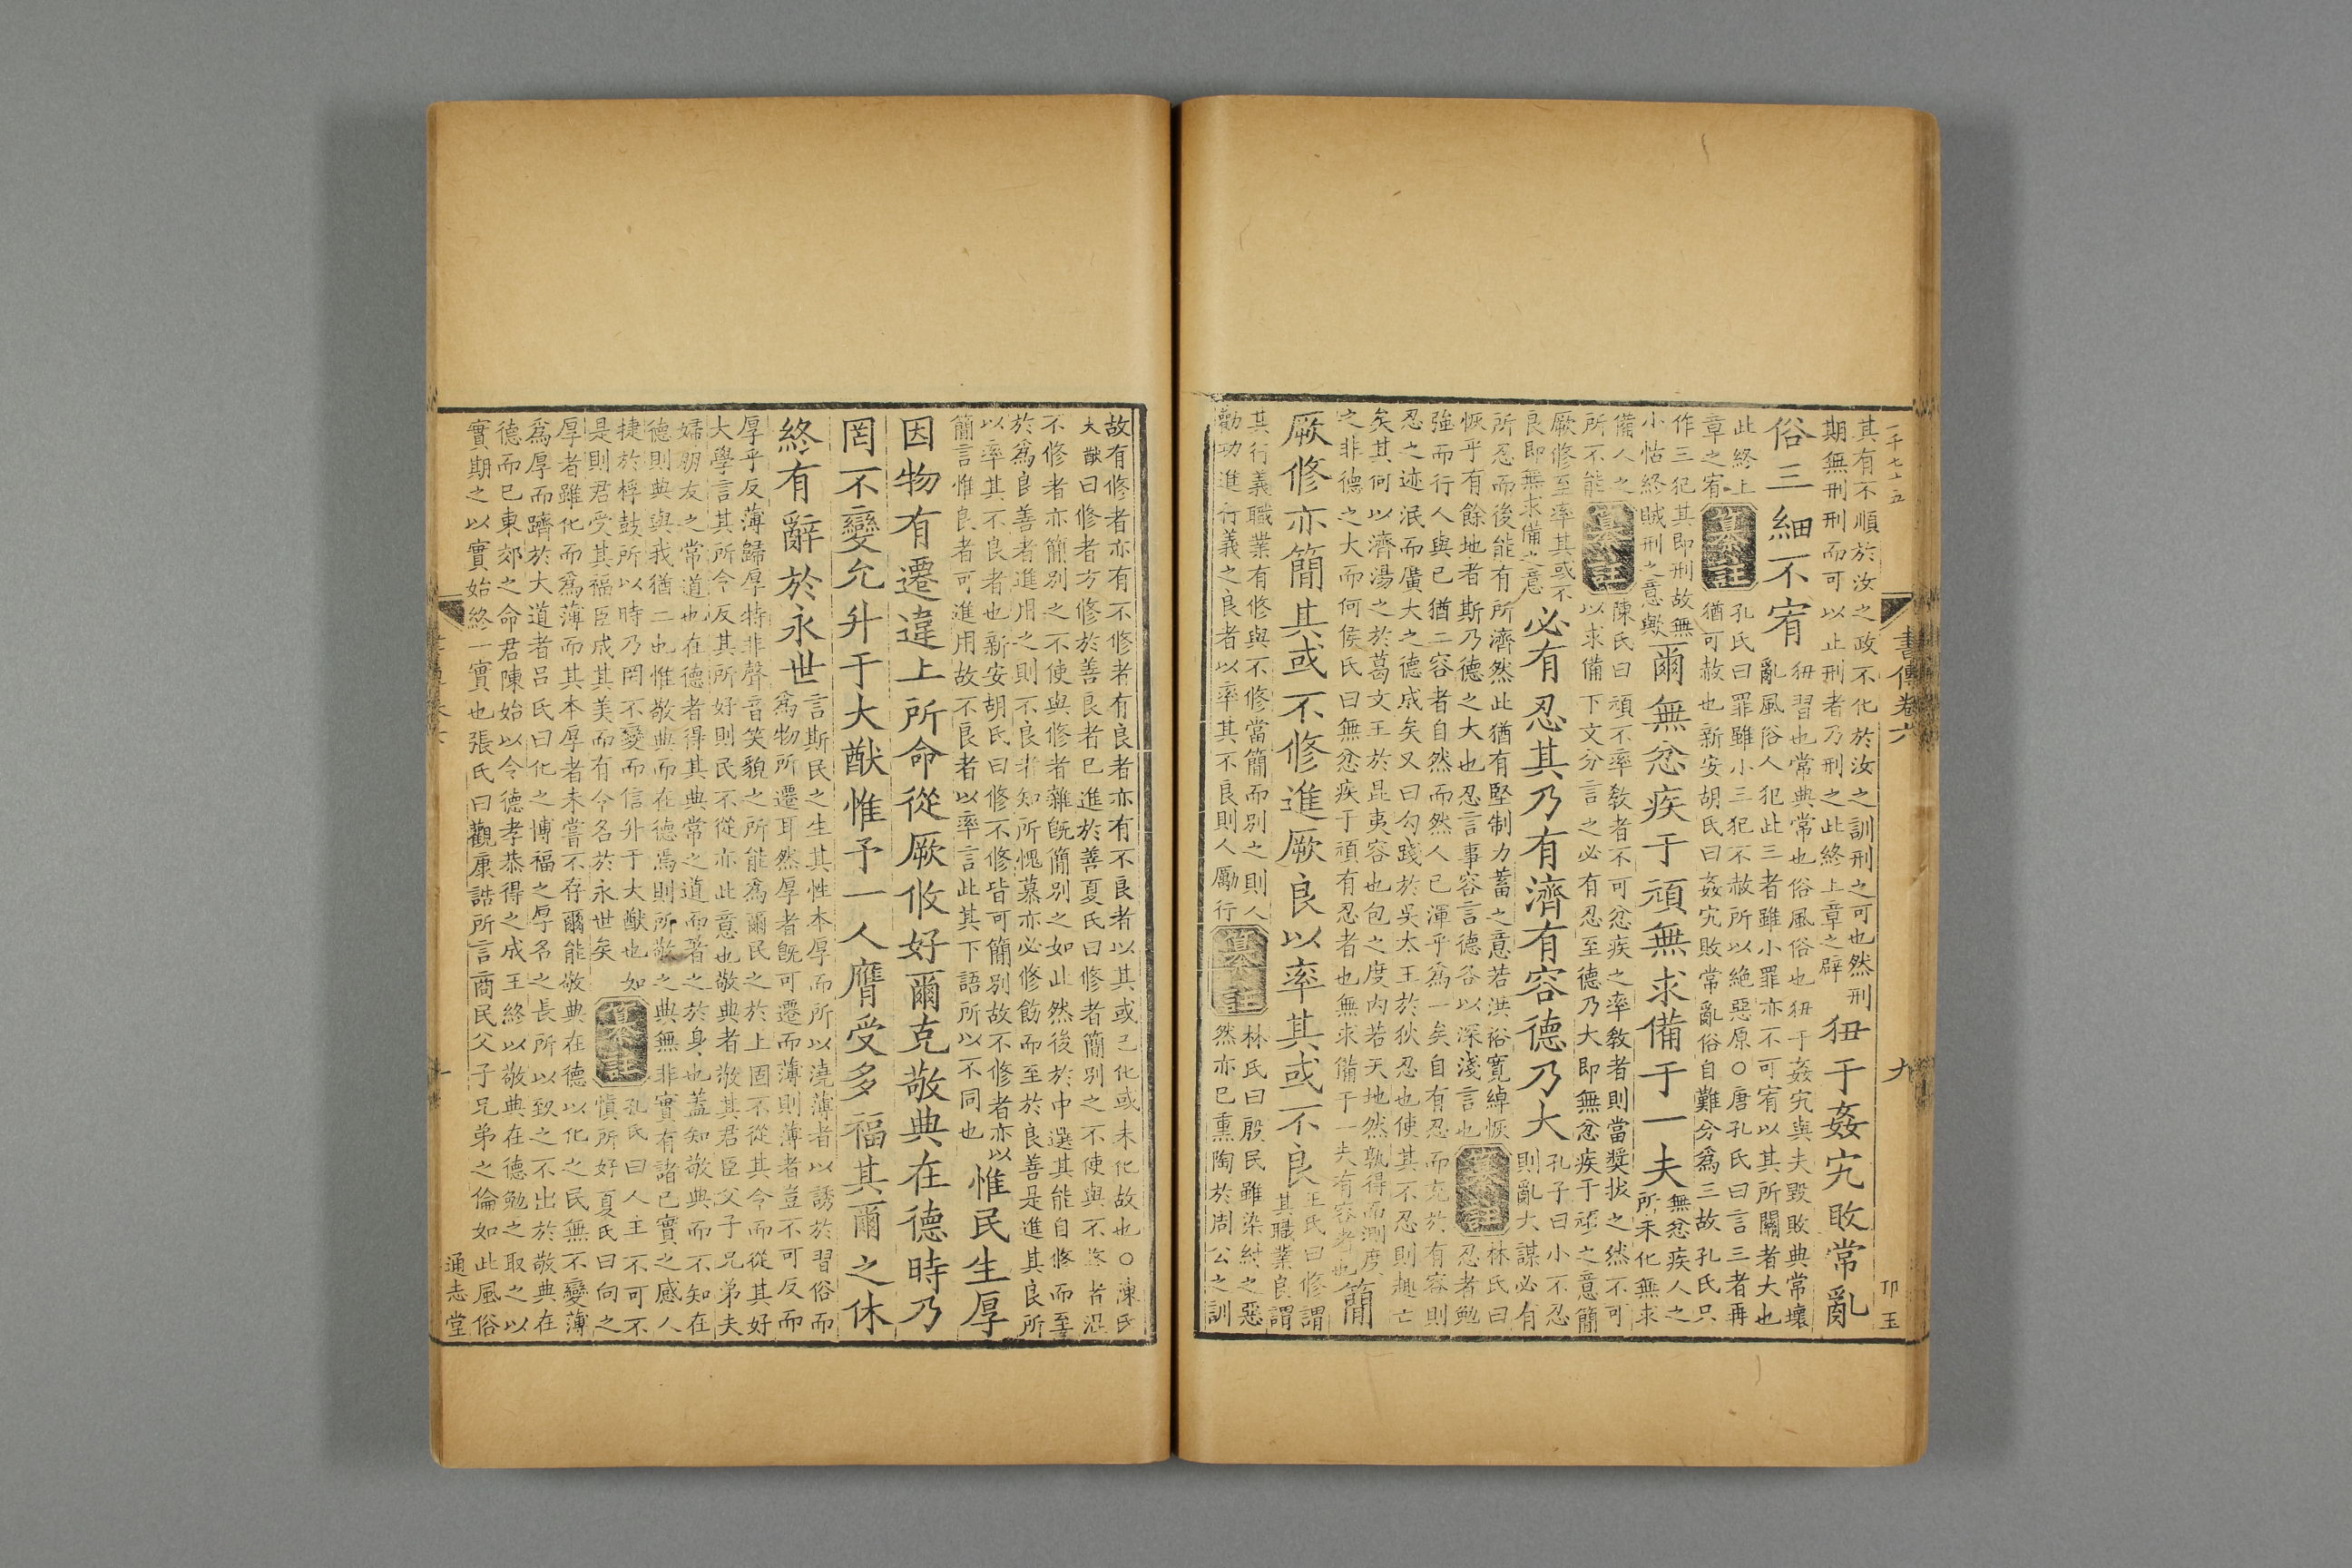 一千七十五
書傳卷六
九
卬玉
其有不順於汝之政不化於汝之訓刑之可也然刑
期無刑刑而可以止刑者乃刑之此終上章之辟
狃于姦宄敗常亂
俗三細不宥
狃習也常典常也俗風俗也狃于姦宄與夫毀敗典常壞
亂風俗人犯此三者雖小罪亦不可宥以其所關者大也
此終上
章之宥
纂註
孔氏曰罪雖小三犯不赦所以絶惡原○唐孔氏曰言三者再
猶可赦也新安胡氏曰姦宄敗常亂俗自難分爲三故孔氏只
作三犯其即刑故無
小怙終賊刑之意歟
爾無忿疾于頑無求備于一夫
無忿疾人之
所未化無求
備人之
所不能
纂註
陳氏曰頑不率敎者不可忿疾之率敎者則當奬拔之然不可
以求備下文分言之必有忍至德乃大即無忿疾于頑之意簡
厥修至率其或不
良即無求備之意
必有忍其乃有濟有容德乃大
孔子曰小不忍
則亂大謀必有
所忍而後能有所濟然此猶有堅制力蓄之意若洪裕寛綽恢
恢乎有餘地者斯乃德之大也忍言事容言德各以深淺言也
纂註
林氏曰
忍者勉
強而行人與己猶二容者自然而然人己渾乎爲一矣自有忍而充於有容則
忍之迹泯而廣大之德成矣又曰勾踐於吳太王於狄忍也使其不忍則趣亡
矣其何以濟湯之於葛文王於昆夷容也包之度内若天地然孰得而測度
之非德之大而何侯氏曰無忿疾于頑有忍者也無求備于一夫有容者也
簡
厥修亦簡其或不修進厥良以率其或不良
王氏曰修謂
其職業良謂
其行義職業有修與不修當簡而別之則人
勸功進行義之良者以率其不良則人勵行
纂註
林氏曰殷民雖染紂之惡
然亦已熏陶於周公之訓
故有修者亦有不修者有良者亦有不良者以其或已化或未化故也○陳氏
大猷曰修者方修於善良者已進於善夏氏曰修者簡別之不使與不修者混
不修者亦簡別之不使與修者雜旣簡別之如此然後於中選其能自修而至
於爲良善者進用之則不良者知所愧慕亦必修飭而至於良善是進其良所
以率其不良者也新安胡氏曰修不修皆可簡別故不修者亦以
簡言惟良者可進用故不良者以率言此其下語所以不同也
惟民生厚
因物有遷違上所命從厥攸好爾克敬典在德時乃
罔不變允升于大猷惟予一人膺受多福其爾之休
終有辭於永世
言斯民之生其性本厚而所以澆薄者以誘於習俗而
爲物所遷耳然厚者旣可遷而薄則薄者豈不可反而
厚乎反薄歸厚特非聲音笑貌之所能爲爾民之於上固不從其令而從其好
大學言其所令反其所好則民不從亦此意也敬典者敬其君臣父子兄弟夫
婦朋友之常道也在德者得其典常之道而著之於身也蓋知敬典而不知在
德則典與我猶二也惟敬典而在德焉則所敬之典無非實有諸己實之感人
捷於桴鼓所以時乃罔不變而信升于大猷也如
是則君受其福臣成其美而有令名於永世矣
纂註
孔氏曰人主不可不
愼所好夏氏曰向之
厚者雖化而爲薄而其本厚者未嘗不存爾能敬典在德以化之民無不變薄
爲厚而躋於大道者呂氏曰化之博福之厚名之長所以致之不出於敬典在
德而已東郊之命君陳始以令德孝恭得之成王終以敬典在德勉之取之以
實期之以實始終一實也張氏曰觀康誥所言商民父子兄弟之倫如此風俗
通志堂